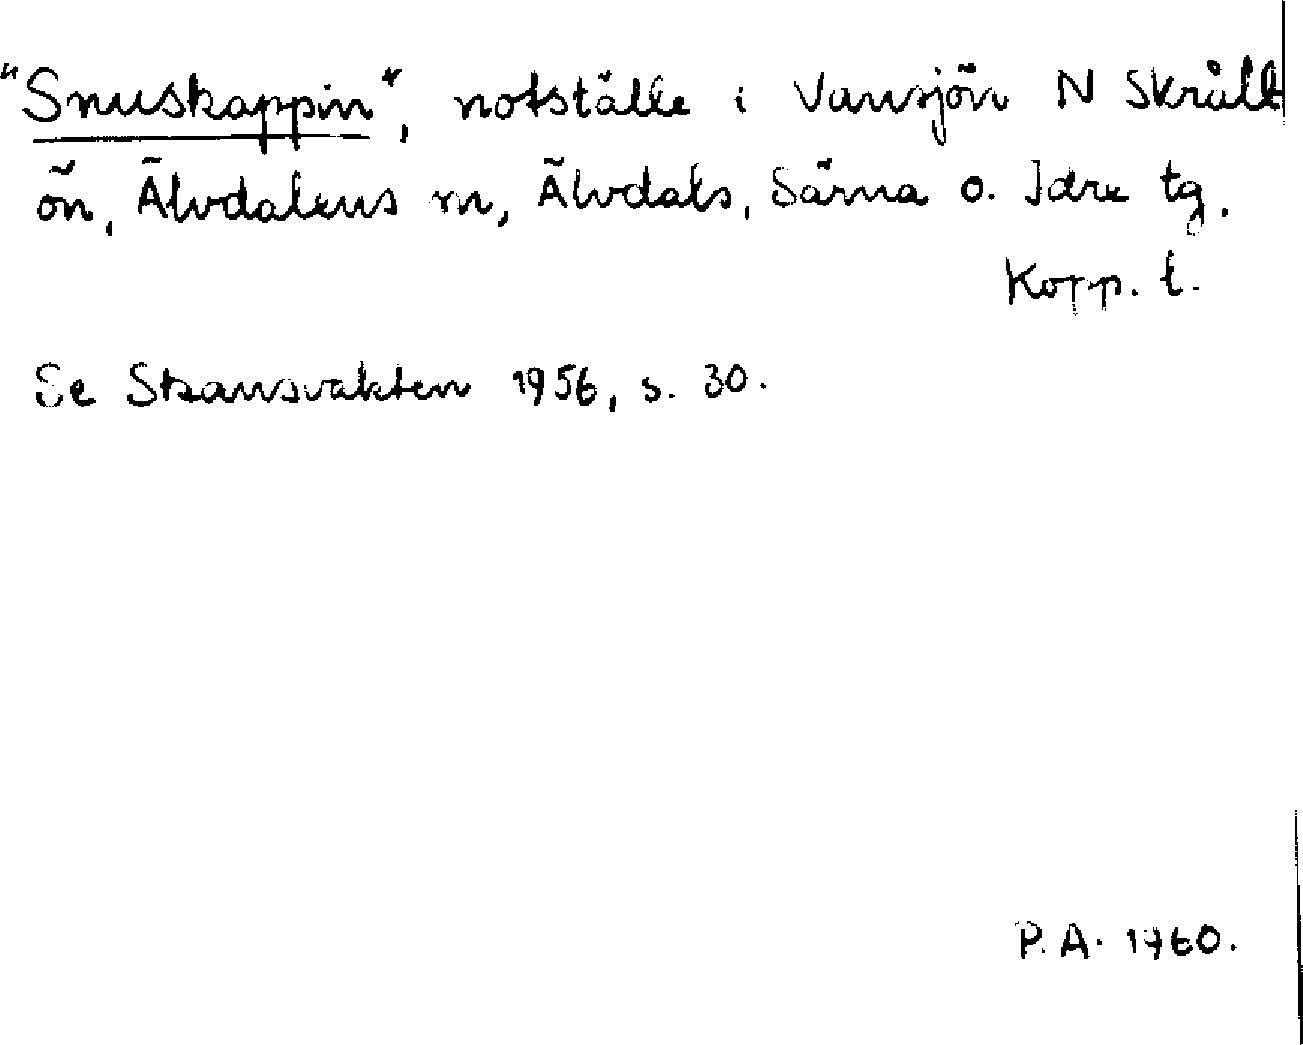 "Snuskappin", notställe i Vansjön N Skråll
ön, Älvdalens sn, Älvdals, Särna o. Idre tg.
Kopp. l.
Se Skansvakten 1956, s. 30.
P.A. 1960.